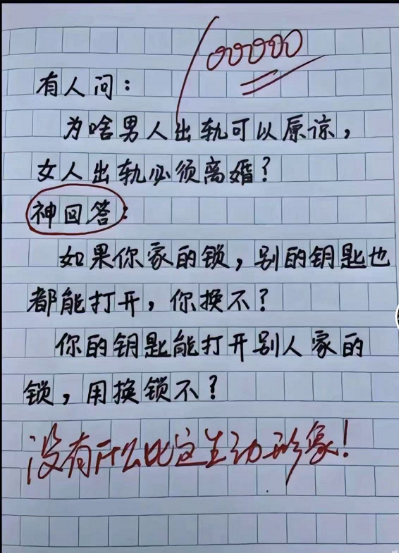 100000
有人问：
为啥男人出轨可以原谅，
女人出轨必须离婚？
神回答：
如果你家的锁，别的钥匙也
都能打开，你换不？
你的钥匙能打开别人家的
锁，用换锁不？
没有什么比这生动形象！